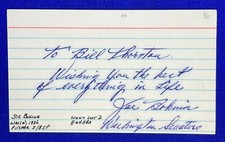 To Bill Thornton
Wishing You the best
of everything in life
Joe Bokina
Washington Senators
JOE BOKINA
1936